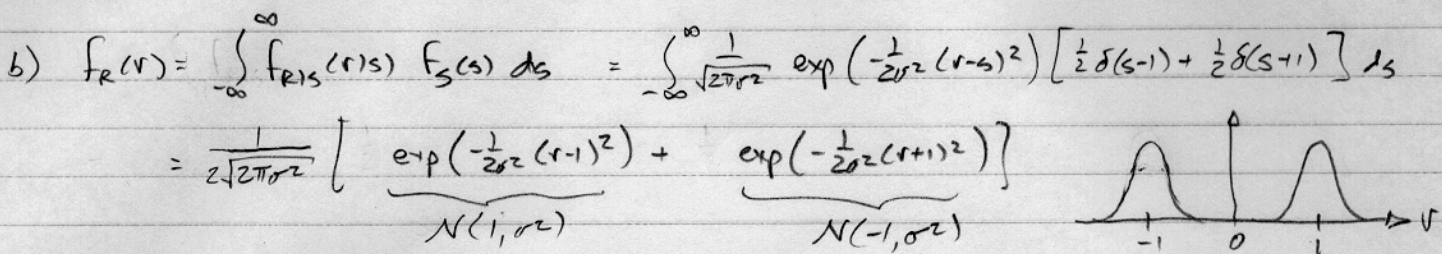 b) f_R(r) = ∫_{-∞}^{∞} f_{R|S}(r|s) f_S(s) ds = ∫_{-∞}^{∞} 1/√(2πσ²) exp(-1/(2σ²) (r-s)²) [½ δ(s-1) + ½ δ(s+1)] ds
= 1/(2√(2πσ²)) [ exp(-1/(2σ²) (r-1)²) + exp(-1/(2σ²) (r+1)²) ]
N(1, σ²) N(-1, σ²)
-1 0 1 r